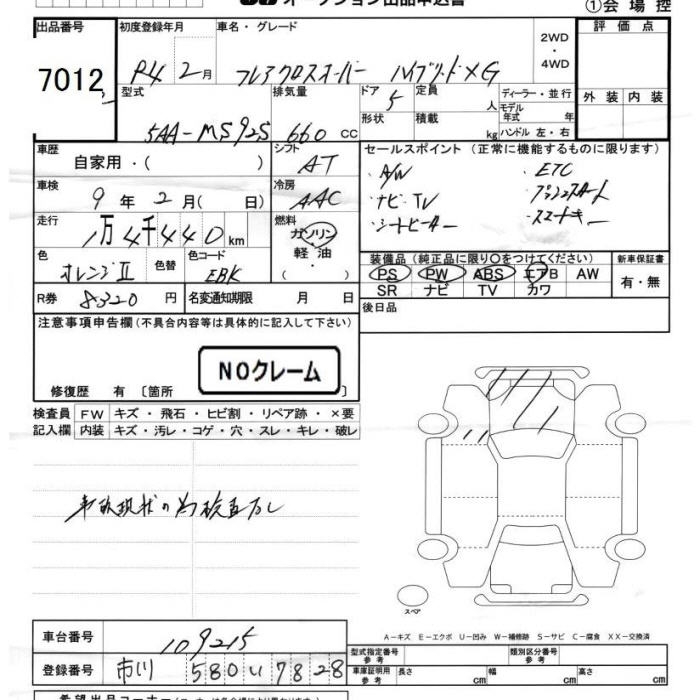 オークション出品申込書
①会場控
出品番号 初度登録年月 車名・グレード 評価点
7012 R4 2月 フレアクロスオーバー ハイブリッドXG 2WD・4WD
型式 排気量 ドア 定員 ディーラー・並行 外装 内装
5 人 モデル年式 年
5AA-MS92S 660 CC 形状 積載 kg ハンドル 左・右
車歴 シフト セールスポイント (正常に機能するものに限ります)
自家用・( ) AT ・A/W ・ETC
車検 冷房 ・ナビ・TV ・プッシュスタート
9年2月(日) AAC ・シートヒーター ・スマートキー
走行 燃料
1万4千440km ガソリン
軽油
・( )
色 色替 色コード 装備品 (純正品に限り○をつけてください) 新車保証書
オレンジⅡ EBK PS PW ABS エアB AW 有・無
SR ナビ TV カワ
R券 8320円 名変通知期限 月 日 後日品
注意事項申告欄 (不具合内容等は具体的に記入して下さい)
NOクレーム
修復歴 有 〔箇所 〕
検査員 FW キズ・飛石・ヒビ割・リペア跡・×要
記入欄 内装 キズ・汚レ・コゲ・穴・スレ・キレ・破レ
事故現状の為検査なし
スペア
A－キズ E－エクボ U－凹み W－補修跡 S－サビ C－腐食 XX－交換済
車台番号 109215
型式指定番号 参考 類別区分番号 参考
登録番号 市川 580 い 7828
車庫証明用 参考 長さ cm 幅 cm 高さ cm